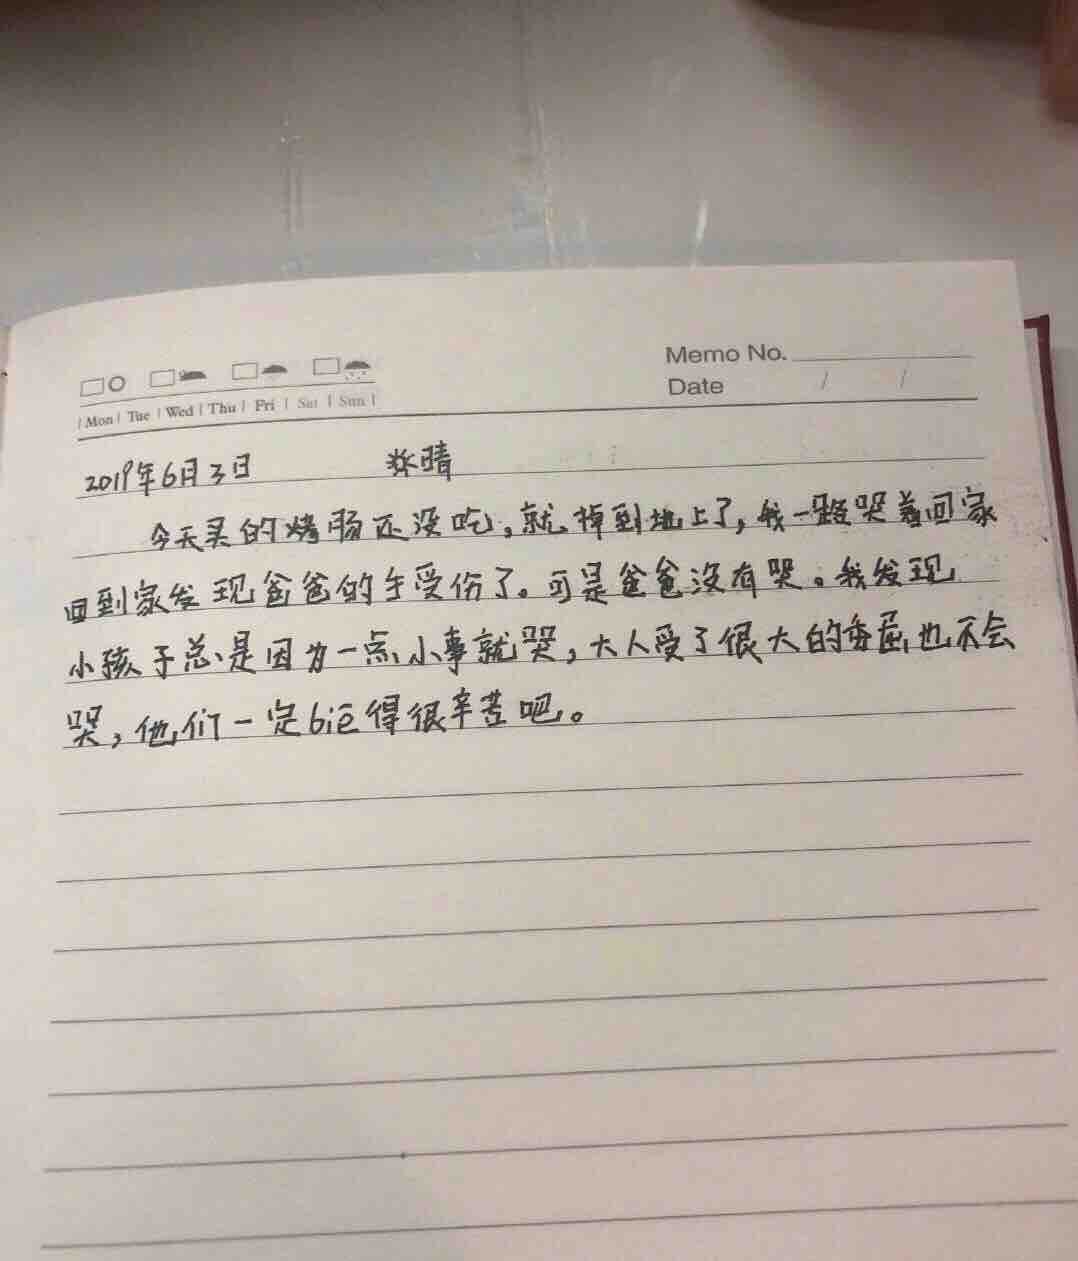 Memo No.
Mon Tue Wed Thu Fri Sat Sun
Date / /
2019年6月3日 晴
今天买的烤肠还没吃,就掉到地上了,我一路哭着回家
回到家发现爸爸的手受伤了。可是爸爸没有哭。我发现
小孩子总是因为一点小事就哭,大人受了很大的委屈也不会
哭,他们一定biē得很辛苦吧。